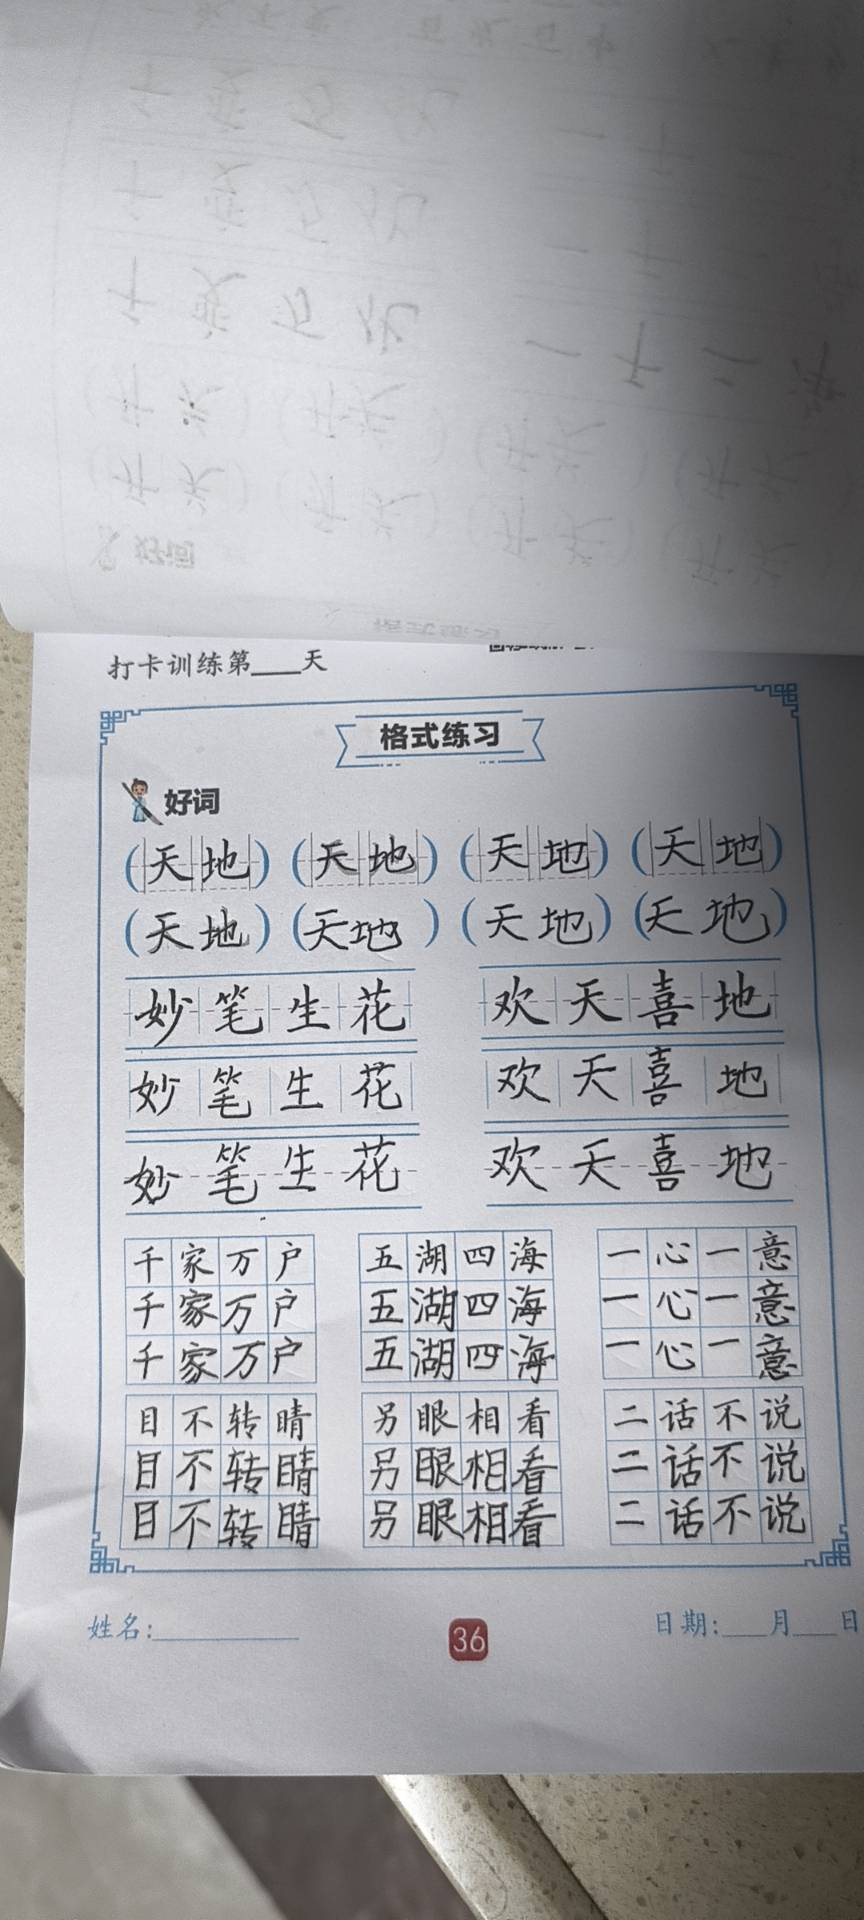 打卡训练第____天
格式练习
好词
(天地) (天地) (天地) (天地)
(天地) (天地) (天地) (天地)
妙笔生花 欢天喜地
妙笔生花 欢天喜地
妙笔生花 欢天喜地
千家万户 五湖四海 一心一意
千家万户 五湖四海 一心一意
千家万户 五湖四海 一心一意
目不转睛 另眼相看 二话不说
目不转睛 另眼相看 二话不说
目不转睛 另眼相看 二话不说
姓名:__________ 36 日期:___月___日